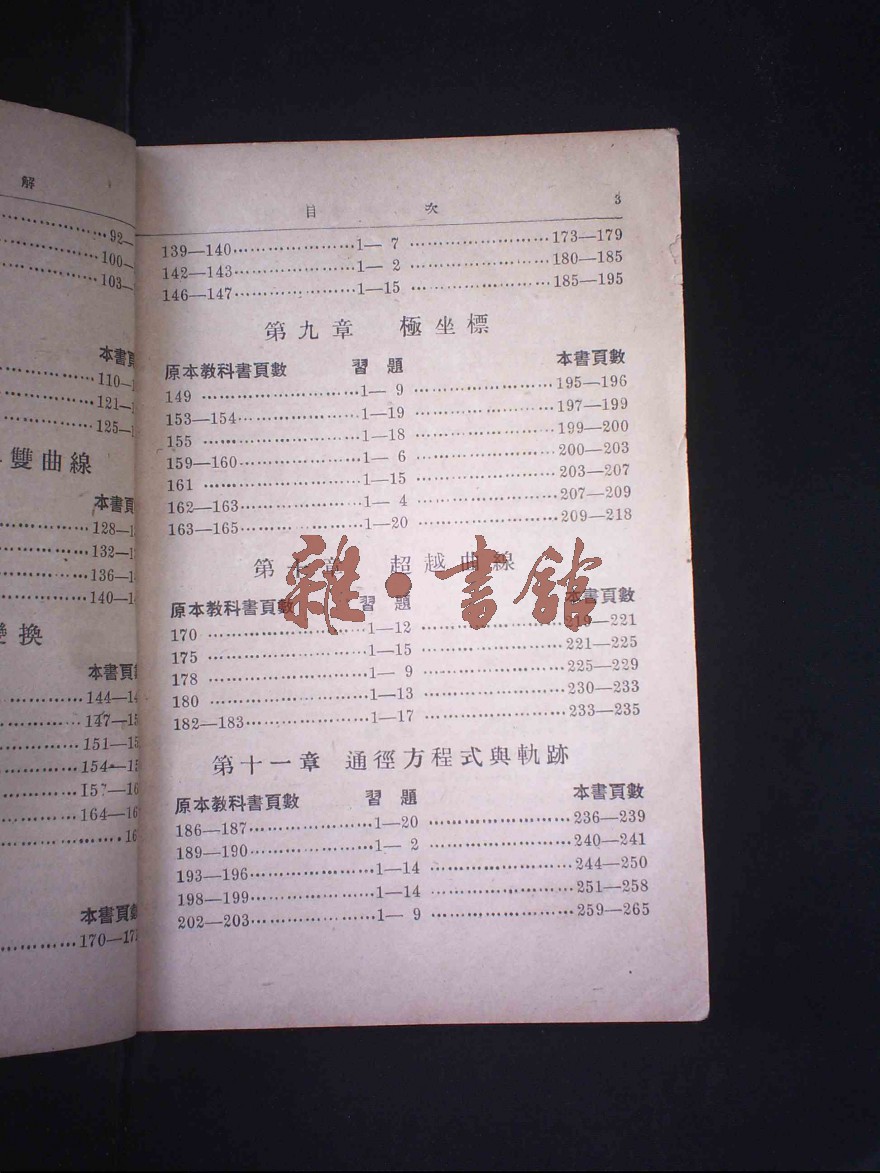 解
92—
100—
103—
本書頁
110—1
121—
125—
雙曲線
本書頁
128—1
132—1
136—1
140—1
變換
本書頁
144—14
147—15
151—15
154—15
157—16
164—16
16
本書頁數
170—17
目 次 3
139—140……………………1— 7 ……………………173—179
142—143……………………1— 2 ……………………180—185
146—147……………………1—15 ……………………185—195
第九章 極坐標
原本教科書頁數 習題 本書頁數
149 ……………………1— 9 ……………………195—196
153—154……………………1—19 ……………………197—199
155 ……………………1—18 ……………………199—200
159—160……………………1— 6 ……………………200—203
161 ……………………1—15 ……………………203—207
162—163……………………1— 4 ……………………207—209
163—165……………………1—20 ……………………209—218
第十章 超越曲線
原本教科書頁數 習題 本書頁數
170 ……………………1—12 ……………………219—221
175 ……………………1—15 ……………………221—225
178 ……………………1— 9 ……………………225—229
180 ……………………1—13 ……………………230—233
182—183……………………1—17 ……………………233—235
第十一章 通徑方程式與軌跡
原本教科書頁數 習題 本書頁數
186—187……………………1—20 ……………………236—239
189—190……………………1— 2 ……………………240—241
193—196……………………1—14 ……………………244—250
198—199……………………1—14 ……………………251—258
202—203……………………1— 9 ……………………259—265
雜·書館